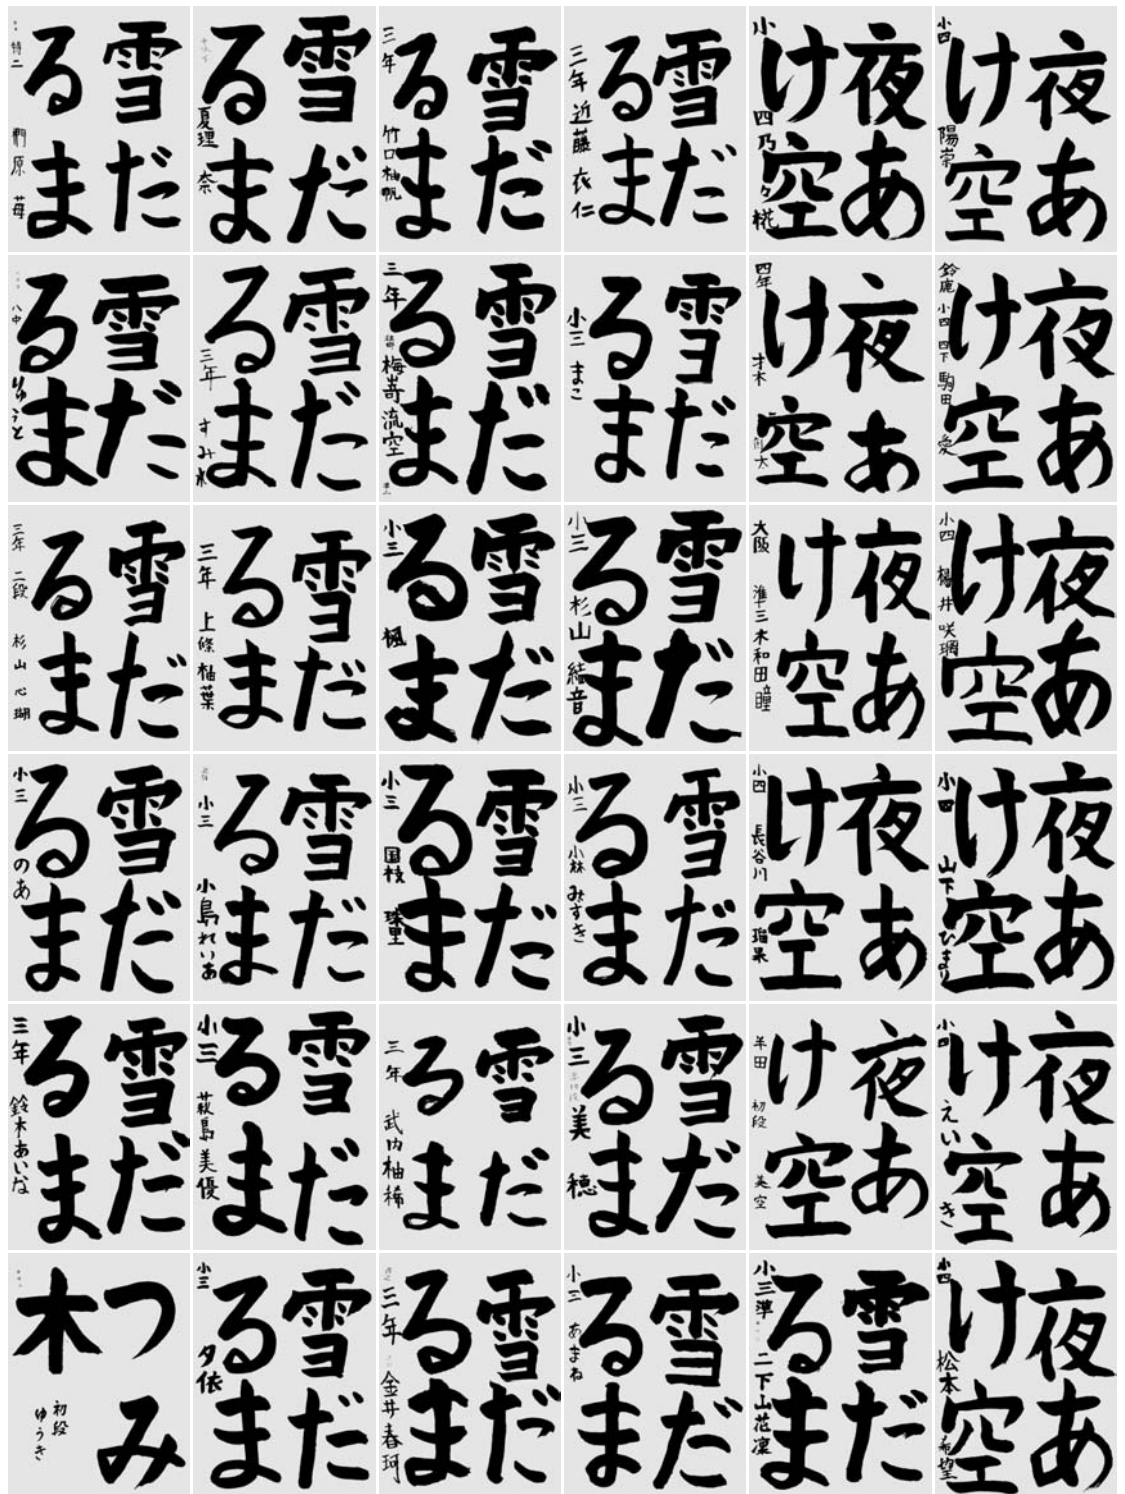 雪だ
るま
特二 原 苺
雪だ
るま
夏理奈
雪だ
るま
三年 竹口柚帆
雪だ
るま
三年 近藤 衣仁
夜あ
け空
小四 乃々椛
夜あ
け空
小四 陽崇
雪だ
るま
八中 りゅうと
雪だ
るま
三年 すみ
雪だ
るま
三年 梅嵜流空
雪だ
るま
小三 まこ
夜あ
け空
四年 才木 創太
夜あ
け空
鈴鹿 小四 四下 駒田 愛
雪だ
るま
三年 二段 杉山心瑚
雪だ
るま
三年 上條柚葉
雪だ
るま
小三 楓
雪だ
るま
小三 杉山 結音
夜あ
け空
大阪 準三 木和田瞳
夜あ
け空
小四 井咲
雪だ
るま
小三 のあ
雪だ
るま
小三 小島れいあ
雪だ
るま
小三 国枝 珠里
雪だ
るま
小三 小林みずき
夜あ
け空
小四 長谷川 瑠果
夜あ
け空
小四 山下ひまり
雪だ
るま
三年 鈴木あいな
雪だ
るま
小三 萩島美優
雪だ
るま
三年 武内柚稀
雪だ
るま
小三 美穂
夜あ
け空
羊田 初段 美空
夜あ
け空
小四 えいき
つみ
木
初段
ゆうき
雪だ
るま
小三 夕依
雪だ
るま
三年 金井春珂
雪だ
るま
小三 あまね
雪だ
るま
小三 準二 下山花凜
夜あ
け空
小四 松本 希望